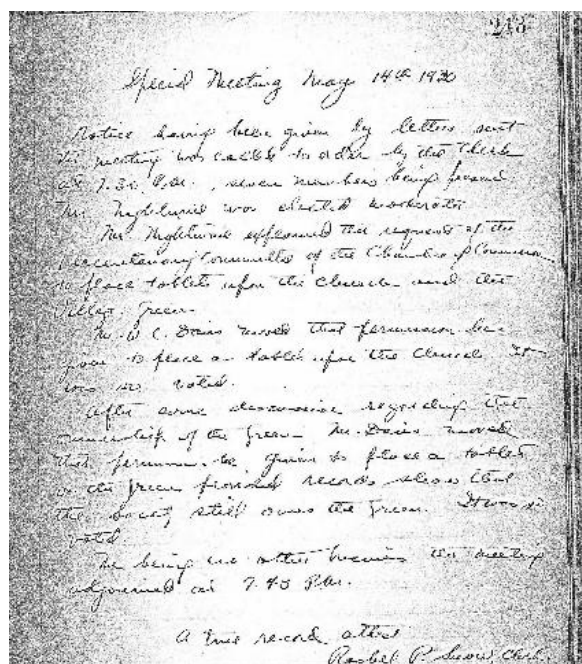 243
Special Meeting May 14th 1930
Notice having been given by letters sent
the meeting was called to order by the Clerk
at 7.30 P.M., seven members being present
Mr. Nightwine was elected moderator
Mr. Nightwine explained the requests of the
Tercentenary Committee of the Chamber of Commerce
to place tablets upon the church and the
Village Green.
Mr. W. C. Davis moved that permission be
given to place a tablet upon the Church. It
was so voted.
After some discussion regarding the
ownership of the Green Mr. Davis moved
that permission be given to place a tablet
on the green provided records show that
the society still owns the Green. It was so
voted
The being no other business the meeting
adjourned at 7.45 P.M.
A true record, attest
Rachel P. Snow Clerk.